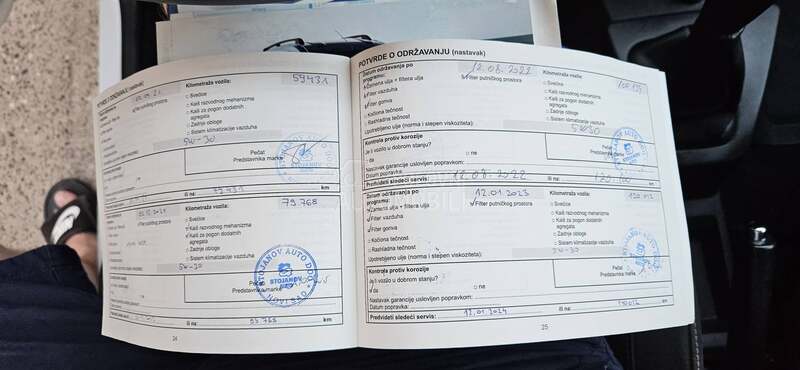 POTVRDE O ODRŽAVANJU (nastavak)
Kilometraža vozila:
59431
Svećice
Kaiš razvodnog mehanizma
Kaiš za pogon dodatnih
agregata
Zadnje obloge
Sistem klimatizacije vazduha
5W-30
Pečat
Predstavnika marke
Ili na:
km
Kilometraža vozila:
79.768
Svećice
Kaiš razvodnog mehanizma
Kaiš za pogon dodatnih
agregata
Zadnje obloge
Sistem klimatizacije vazduha
5W-30
Pečat
Predstavnika marke
STOJANOV AUTO DOO
STOJANOV
NOVI SAD
Ili na:
km
24
POTVRDE O ODRŽAVANJU (nastavak)
Datum održavanja po
programu:
12.08.2022
Kilometraža vozila:
Zamena ulja + filtera ulja
Filter putničkog prostora
Svećice
Filter vazduha
Kaiš razvodnog mehanizma
Filter goriva
Kaiš za pogon dodatnih
agregata
Kočiona tečnost
Zadnje obloge
Rashladna tečnost
Sistem klimatizacije vazduha
Upotrebljeno ulje (norma i stepen viskoziteta):
5W30
Kontrola protiv korozije
Je li vozilo u dobrom stanju?
da
ne
Pečat
Predstavnika marke
Nastavak garancije uslovljen popravkom:
Datum popravka:
Predvideti sledeći servis:
12.08.2022
Ili na:
km
Datum održavanja po
programu:
12.01.2023
Kilometraža vozila:
Zamena ulja + filtera ulja
Filter putničkog prostora
Svećice
Filter vazduha
Kaiš razvodnog mehanizma
Filter goriva
Kaiš za pogon dodatnih
agregata
Kočiona tečnost
Zadnje obloge
Rashladna tečnost
Sistem klimatizacije vazduha
Upotrebljeno ulje (norma i stepen viskoziteta):
5W-30
Kontrola protiv korozije
Je li vozilo u dobrom stanju?
da
ne
Pečat
Predstavnika marke
Nastavak garancije uslovljen popravkom:
Datum popravka:
Predvideti sledeći servis:
12.01.2024
Ili na:
km
25